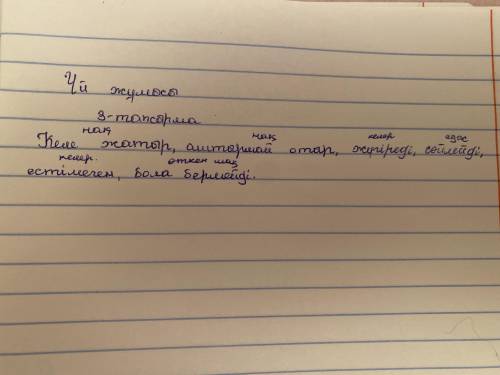 Үй жұмысы
3-тапсырма
нақ нақ келер
Келе жатыр, аштырмай отыр, жүгіреді, сөйлейді,
келер. өткен шақ
естімеген, бола бермейді.